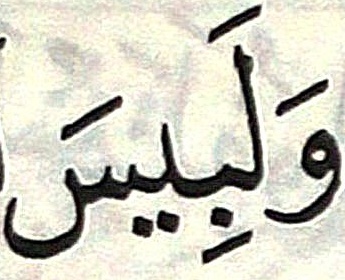 وَلَبِيسَ